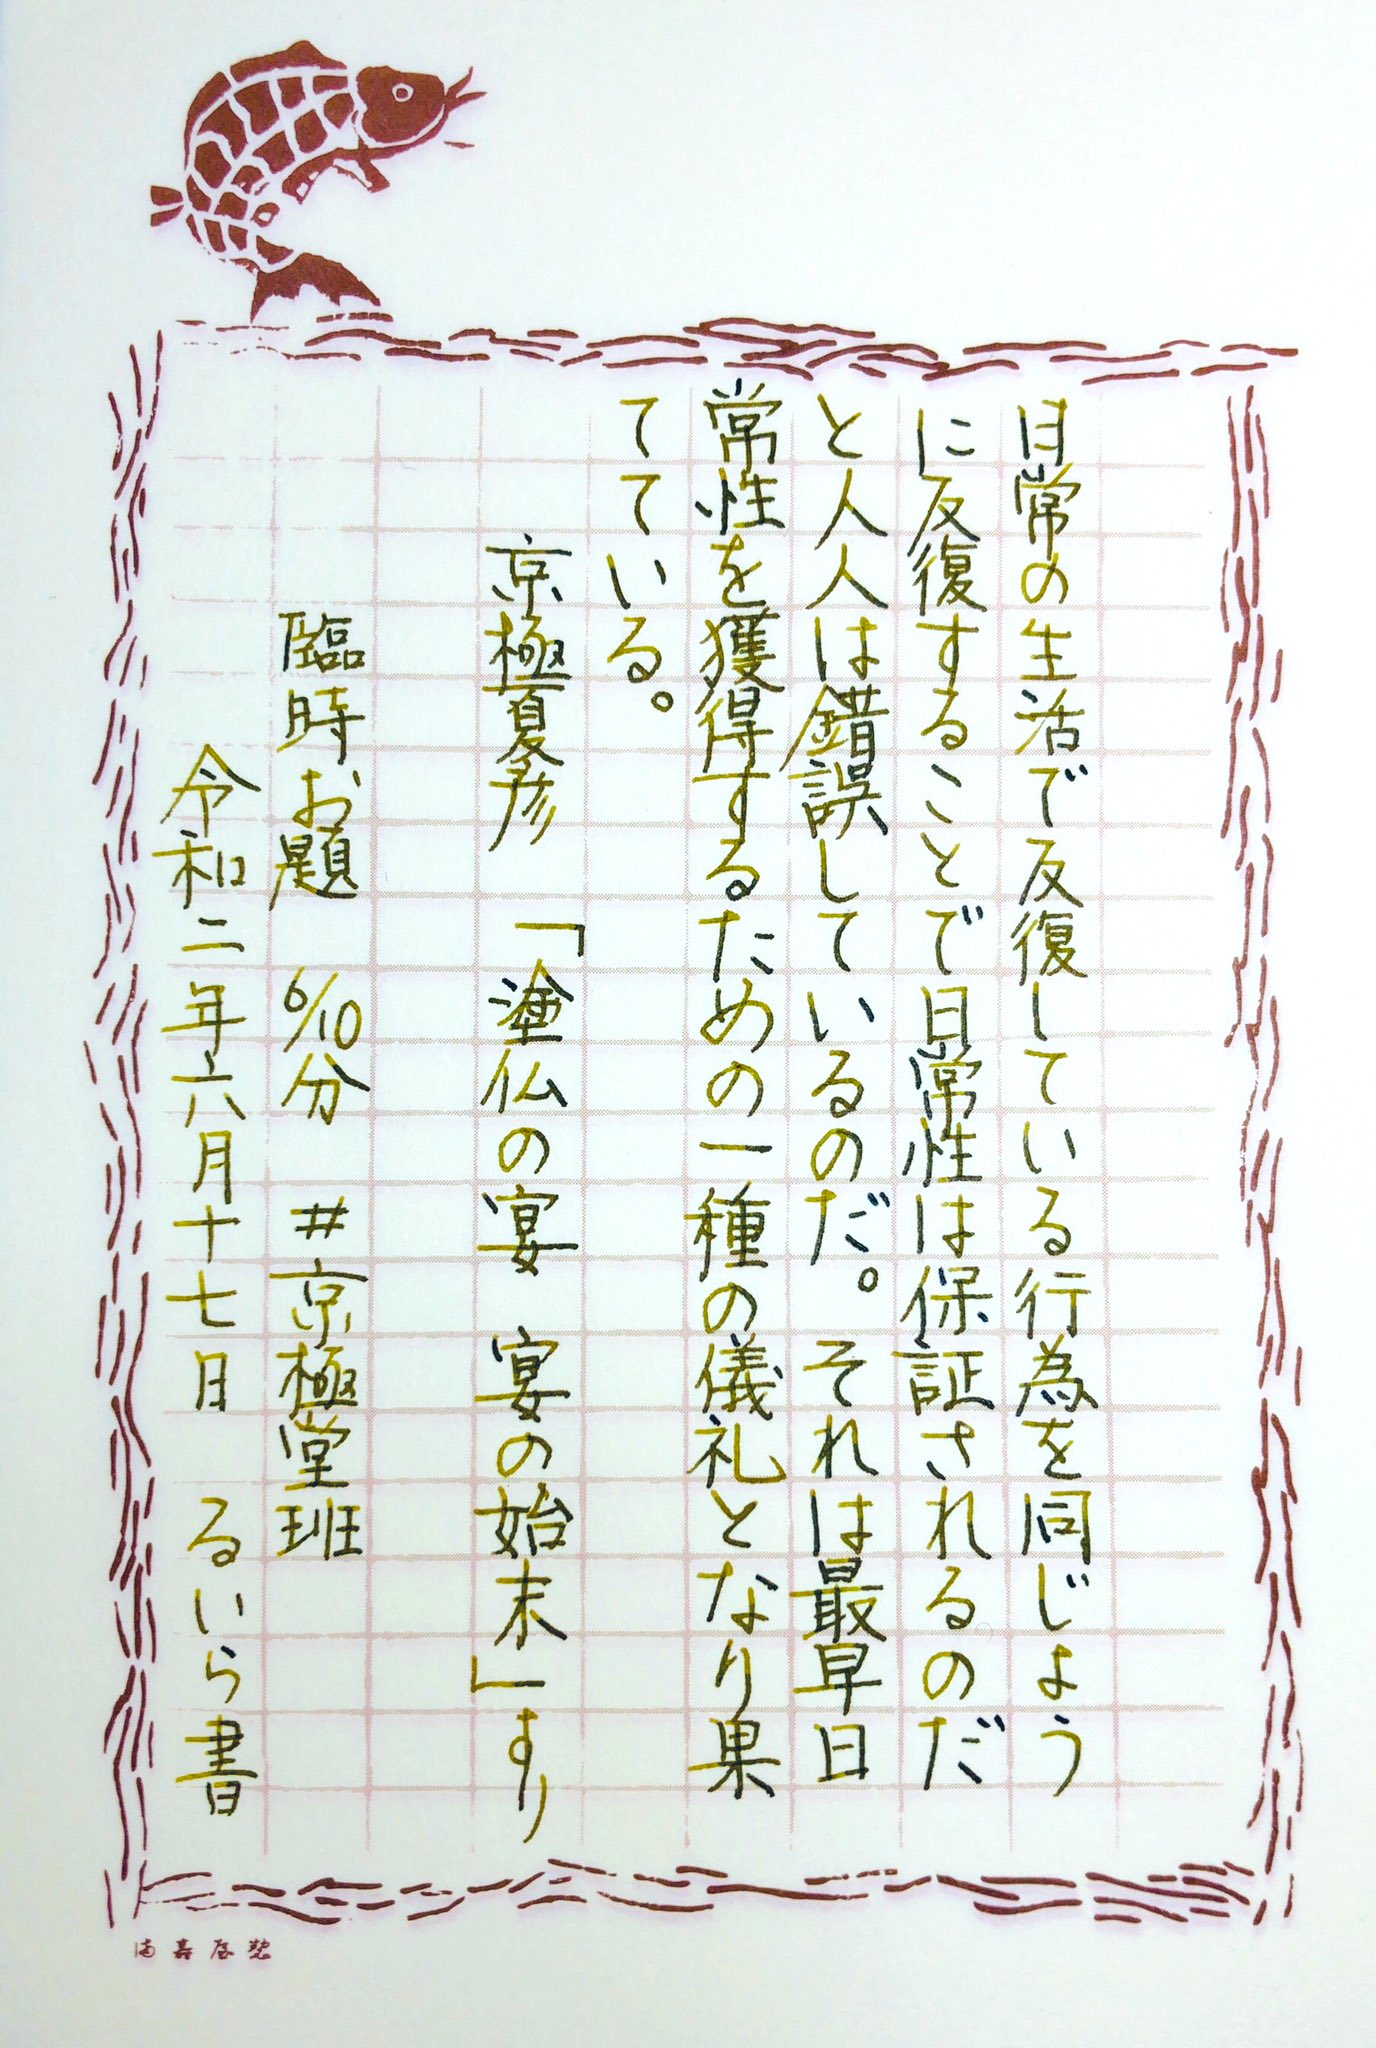 日常の生活で反復している行為を同じよう
に反復することで日常性は保証されるのだ
と人人は錯誤しているのだ。それは最早日
常性を獲得するための一種の儀礼となり果
てている。
京極夏彦 「塗仏の宴 宴の始末」より
臨時お題 6/10分 #京極堂班
令和二年六月十七日 るいら書